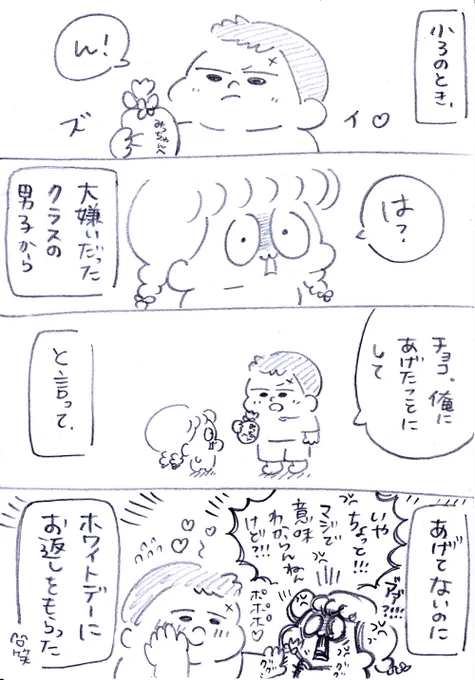 小3のとき、
ん!
みっちゃんへ
ズイ♡
は?
大嫌いだった
クラスの
男子から
チョコ。俺に
あげたことに
して
と、言って、
あげてないのに
いや
ちょっと!!!
マジで
意味
わからんねん
けど?!!
ポポポ♡
ホワイトデーに
お返しをもらった